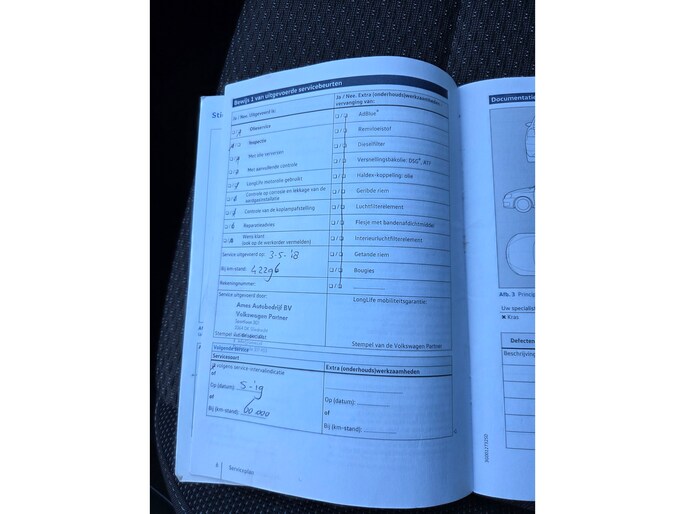 Bewijs 1 van uitgevoerde servicebeurten
Ja / Nee: Uitgevoerd is:
Olieservice
Inspectie
Met olie verversen
Met aanvullende controle
LongLife motorolie gebruikt
Controle op corrosie en lekkage van de
Controle van de koplampafstelling
Reparatieadvies
Wens klant
(ook op de werkorder vermelden)
Service uitgevoerd op: 3-5-'18
Bij km-stand: 42296
Rekeningnummer:
Service uitgevoerd door:
Ames Autobedrijf BV
Volkswagen Partner
Ja / Nee: Extra (onderhouds)werkzaamheden
vervanging van:
AdBlue®
Remvloeistof
Dieselfilter
Versnellingsbakolie: DSG®, ATF
Haldex-koppeling: olie
Geribde riem
Luchtfilterelement
Flesje met bandenafdichtmiddel
Interieurluchtfilterelement
Getande riem
Bougies
LongLife mobiliteitsgarantie:
Stempel van de Volkswagen Partner
Volgende service
Servicesoort
volgens service-intervalindicatie
of
Op (datum): 5-'19
of
Bij (km-stand): 60.000
Extra (onderhouds)werkzaamheden
Op (datum):
of
Bij (km-stand):
6 Serviceplan
Documentatie
Afb. 3 Princip
Uw specialist
Kras
Defecten
Beschrijving